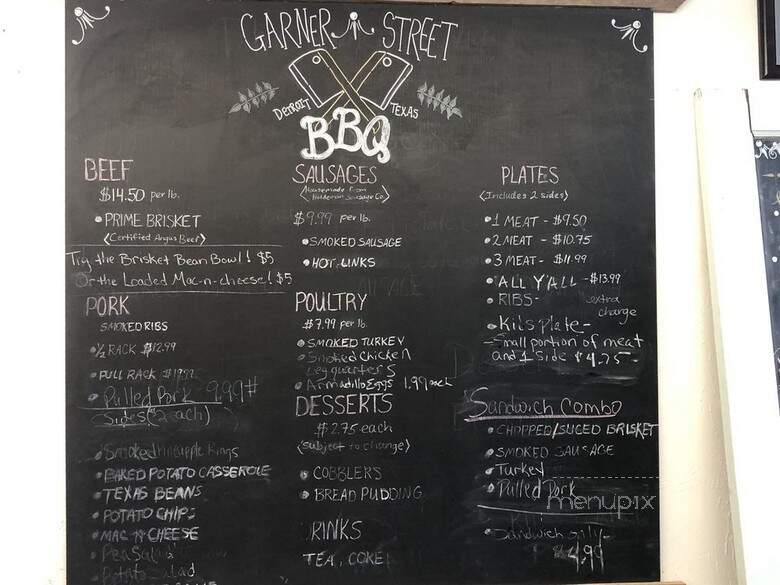 GARNER STREET
DETROIT TEXAS
BBQ
BEEF
$14.50 per lb.
• PRIME BRISKET
<Certified Angus Beef>
Try the Brisket Bean Bowl! $5
Or the Loaded Mac-n-cheese! $5
PORK
SMOKED RIBS
• ½ RACK $12.99
• FULL RACK $19.99
• Pulled Pork 9.99#
Sides ($2 each)
• Smoked Pineapple Rings
• BAKED POTATO CASSEROLE
• TEXAS BEANS
• POTATO CHIPS
• MAC N CHEESE
• Pea Salad
• Potato Salad
SAUSAGES
<Housemade from
Sausage Co.>
$9.99 per lb.
• SMOKED SAUSAGE
• HOT LINKS
POULTRY
$7.99 per lb.
• SMOKED TURKEY
• Smoked Chicken
Leg quarters
• Armadillo Eggs 1.99 each
DESSERTS
$2.75 each
<subject to change>
• COBBLERS
• BREAD PUDDING
RINKS
TEA, COKE
PLATES
<Includes 2 sides>
• 1 MEAT - $9.50
• 2 MEAT - $10.75
• 3 MEAT - $11.99
• ALL Y'ALL - $13.99
• RIBS - extra
charge
• Kids Plate -
- Small portion of meat
and 1 side $4.75 -
Sandwich Combo
• CHOPPED/SLICED BRISKET
• SMOKED SAUSAGE
• Turkey
• Pulled Pork
menupix
• Sandwich only -
$4.99